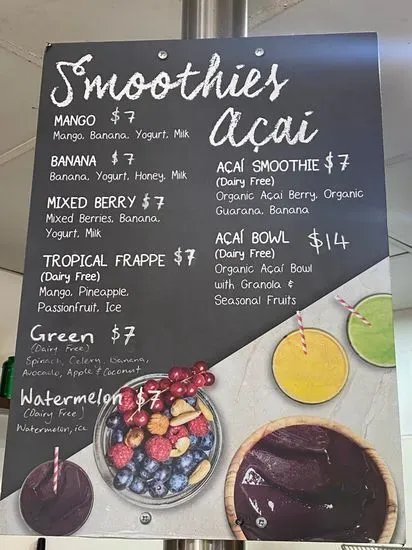 Smoothies
Açai
MANGO $7
Mango, Banana, Yogurt, Milk
BANANA $7
Banana, Yogurt, Honey, Milk
MIXED BERRY $7
Mixed Berries, Banana,
Yogurt, Milk
TROPICAL FRAPPE $7
(Dairy Free)
Mango, Pineapple,
Passionfruit, Ice
Green $7
(Dairy Free)
Spinach, Celery, Banana,
Avocado, Apple & Coconut
Watermelon $7
(Dairy Free)
Watermelon, ice
AÇAÍ SMOOTHIE $7
(Dairy Free)
Organic Açaí Berry, Organic
Guarana, Banana
AÇAÍ BOWL $14
(Dairy Free)
Organic Açaí Bowl
with Granola &
Seasonal Fruits